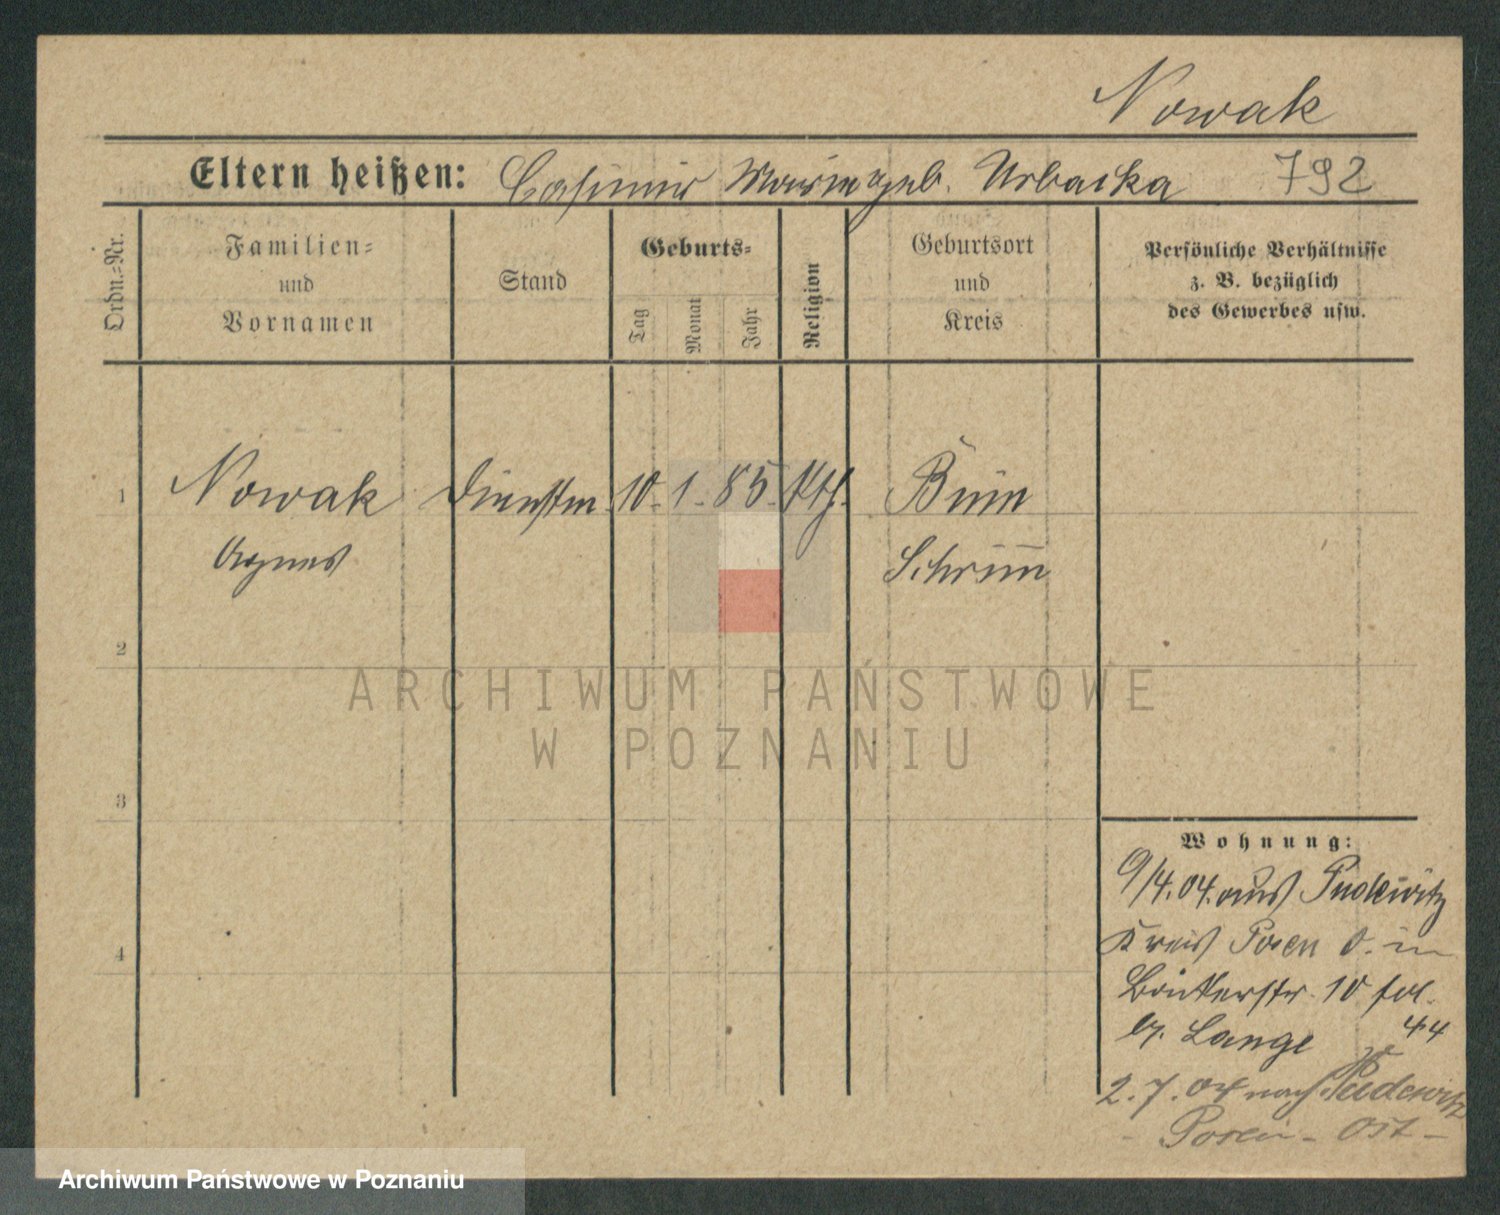 Nowak
Eltern heißen: Casimir Marie geb. Urbacka 792
Ordn.=Nr.
Familien=
und
Vornamen
Stand
Geburts=
Tag
Monat
Jahr
Religion
Geburtsort
und
Kreis
Persönliche Verhältnisse
z. B. bezüglich
des Gewerbes usw.
1
Nowak Dienstm. 10. 1. 85. kth. Bnin
Agnes Schrimm
2
ARCHIWUM PAŃSTWOWE
W POZNANIU
3
Wohnung:
9/4.04. aus Pudewitz
Kreis Posen O. in
10 fol.
b. Lange 44
2.7.04 nach Pudewitz
- Posen - Ost -
4
Archiwum Państwowe w Poznaniu